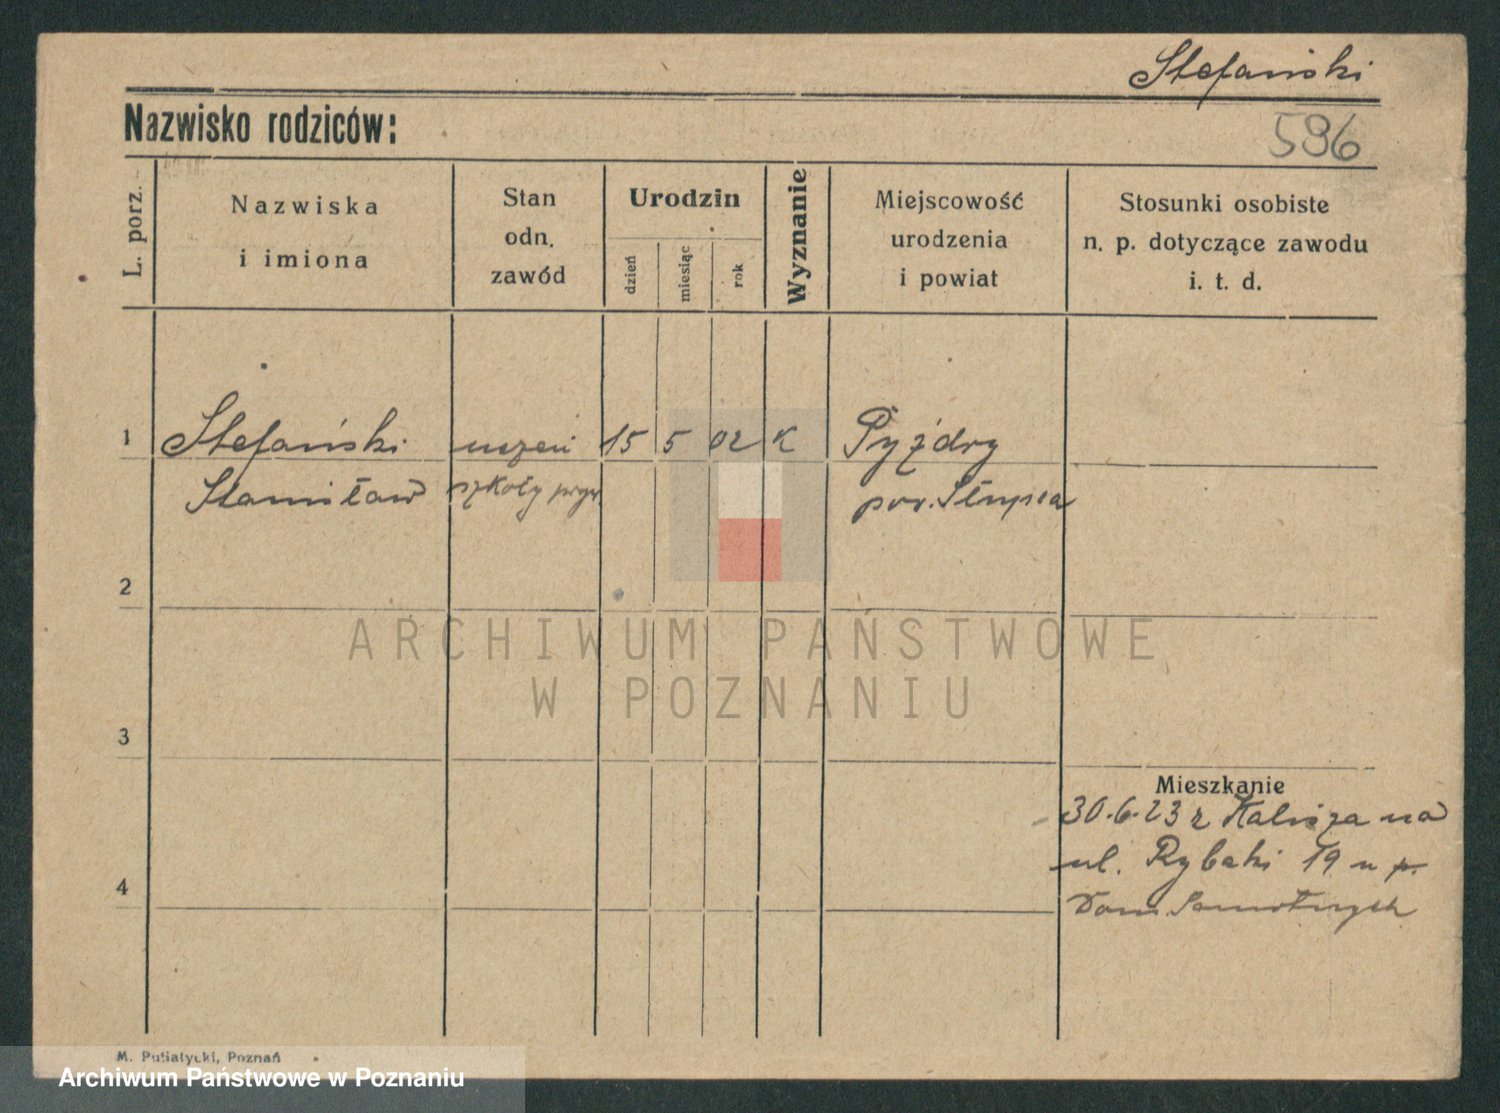 Stefański
Nazwisko rodziców:
596
L. porz.
Nazwiska
i imiona
Stan
odn.
zawód
Urodzin
dzień
miesiąc
rok
Wyznanie
Miejscowość
urodzenia
i powiat
Stosunki osobiste
n. p. dotyczące zawodu
i. t. d.
1 Stefański uczeń 15 5 02 K Pyzdry
Stanisław szkoły pow. Słupca
2
3
4
Mieszkanie
30.6.23 z Kalisza na
ul. Rybaki 19 u p.
Dom. Samotnych
ARCHIWUM PAŃSTWOWE
W POZNANIU
M. Putiatycki, Poznań
Archiwum Państwowe w Poznaniu